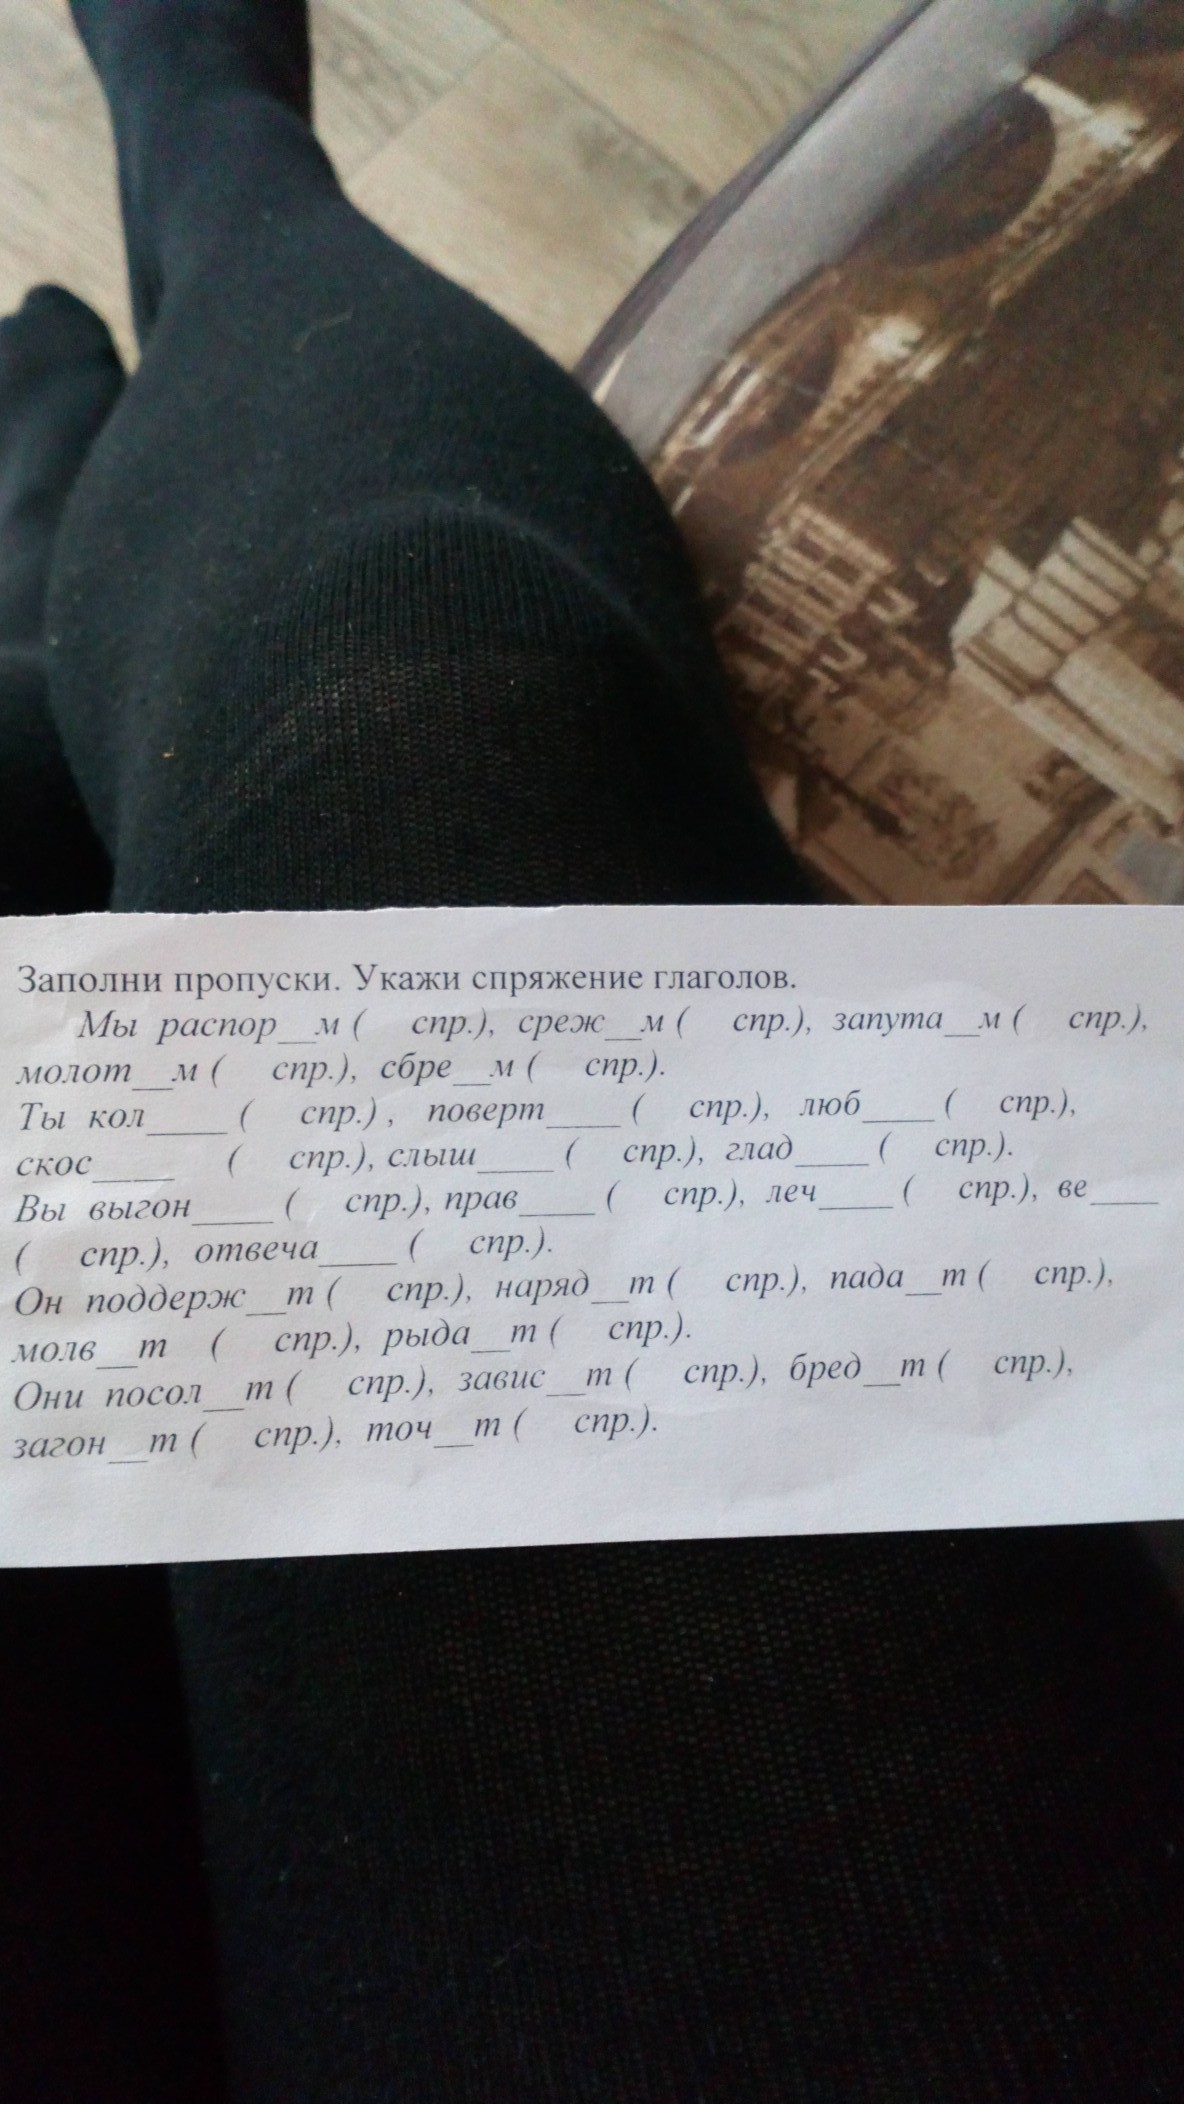 Заполни пропуски. Укажи спряжение глаголов.
Мы распор__м ( спр.), среж__м ( спр.), запута__м ( спр.),
молот__м ( спр.), сбре__м ( спр.).
Ты кол____ ( спр.) , поверт____ ( спр.), люб____ ( спр.),
скос____ ( спр.), слыш____ ( спр.), глад____ ( спр.).
Вы выгон____ ( спр.), прав____ ( спр.), леч____ ( спр.), ве____
( спр.), отвеча____ ( спр.).
Он поддерж__т ( спр.), наряд__т ( спр.), пада__т ( спр.),
молв__т ( спр.), рыда__т ( спр.).
Они посол__т ( спр.), завис__т ( спр.), бред__т ( спр.),
загон__т ( спр.), точ__т ( спр.).